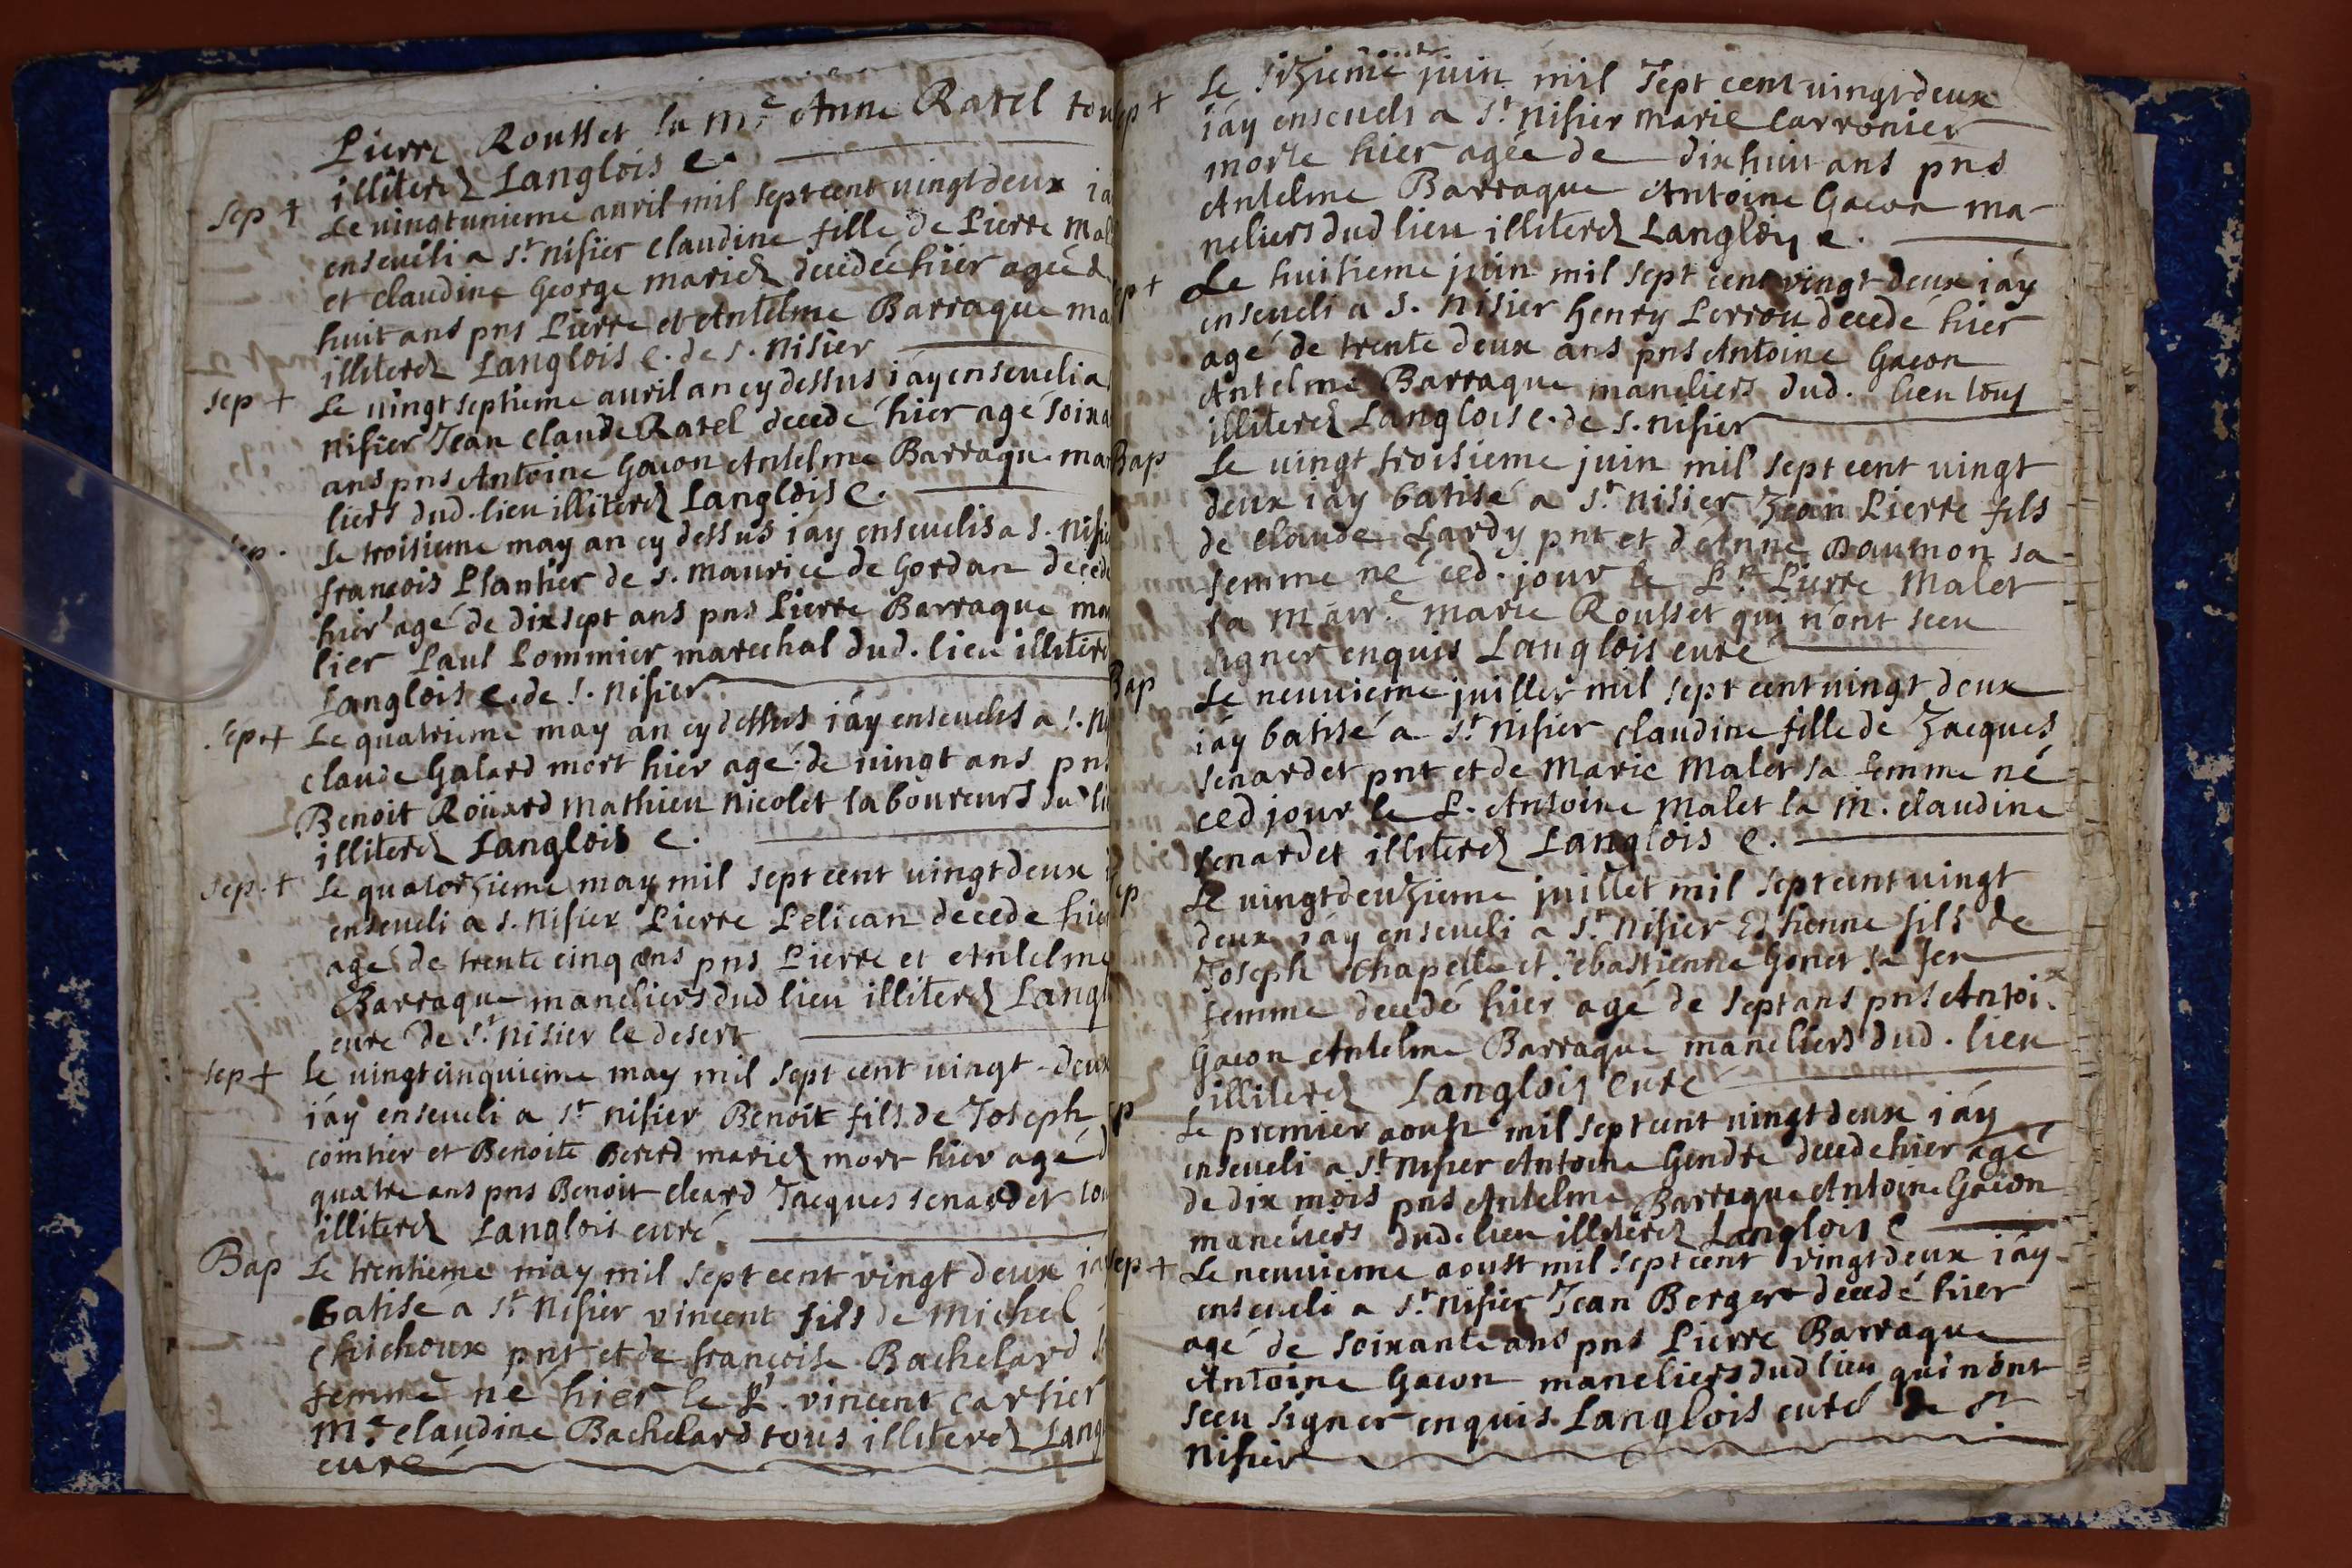 Pierre Rousset la m.e Anne Ratel tou
illiterez Langlois c.
sep + Le vingtunieme avril mil sept cent vingt deux ia
enseveli a st nisier claudine fille de Pierre Mal
et claudine George mariez decedée hier agée d
huit ans pns Pierre et Antelme Barraque ma
illiterez Langlois c. de s. nisier
sep + Le vingt septieme avril an cy dessus iáy enseveli a
nisier Jean claude Ratel decedé hier agé soixa
ans pns Antoine Gacon Antelme Barraque ma
liers dud. lieu illiterez Langlois c.
sep. Le troisieme may an cy dessus iay ensevelis a s. nisi
francois Plantier de s. maurice de Gordan decede
hier agé de dixsept ans pns Pierre Barraque ma
lier Paul Pommier marechal dud. lieu illiter
Langlois c. de s. nisier
sep + Le quatrieme may an cy dessus iáy ensevelis a s. ni
claude Galard mort hier agé de vingt ans pns
Benoit Roüard Mathieu nicolet laboureurs du li
illiterez Langlois c.
sep. + Le quatorzieme may mil sept cent vingt deux i
enseveli a s. nisier Pierre Pelican decede hier
agé de trente cinq ans pns Pierre et Antelme
Barraque maneliers dud lieu illiterez Langl
curé de st nisier le desert
sep + Le vingt cinquieme may mil sept cent vingt-deux
iáy enseveli a st nisier Benoit fils de Joseph
comtier et Benoite Bererd mariez mort hier agé d
quatre ans pns Benoit cleard Jacques senardet tou
illiterez Langlois curé
Bap Le trentieme may mil sept cent vingt deux ia
Batisé a st nisier vincent fils de michel
chichoux pnt et de francoise Bachelard s
femme né hier le P. vincent cartier
M.e claudine Bachelard tous illiterez Lang
curé
sep + Le sizieme juin mil sept cent vingt deux
iáy enseveli a st nisier marie carronier
morte hier agée de dix huit ans pns
Antelme Barraque Antoine Gacon ma-
neliers dud lieu illiterez Langlois c.
ep + Le huitieme juin mil sept cent vingt-deux iáy
enseveli a s. nisier henry Perrou decedé hier
agé de trente deux ans pns Antoine Gacon
Antelme Barraque maneliers dud. lieu tous
illiterez Langlois c. de s. nisier
Bap Le vingt troisieme juin mil sept cent vingt
deux iáy batisé a st nisier Jean Pierre fils
de claude Lardy pnt et d'Anne Baumon sa
femme né ced. jour le P.n Pierre Malet
la marr.e marie Rousset qui n'ont sceu
signer enquis Langlois curé
Bap Le neuvieme juillet mil sept cent vingt deux
iáy batisé a st nisier claudine fille de Jacques
senardet pnt et de Marie Malet sa femme né
ced jour le P. Antoine Malet la M. claudine
senardet illiterez Langlois c.
ep Le vingtdeuzieme juillet mil sept cent vingt
deux iáy enseveli a st nisier Estienne fils de
Joseph chapelle et sebastienne Gonet sa feu
femme decedé hier agé de sept ans pns Antoi.
Gacon Antelme Barraque maneliers dud. lieu
illiterez Langlois curé
ep Le premier aoust mil sept cent vingt deux iáy
enseveli a st nisier Antoine Gendre decede hier agé
de dix mois pns Antelme Barraque Antoine Gacon
maneliers dud. lieu illiterez Langlois c
sep + Le neuvieme aoust mil sept cent vingt deux iáy
enseveli a st nisier Jean Berger decedé hier
agé de soixante ans pns Pierre Barraque
Antoine Gacon maneliers dud lieu qui nónt
sceu signer enquis Langlois curé de st
nisier